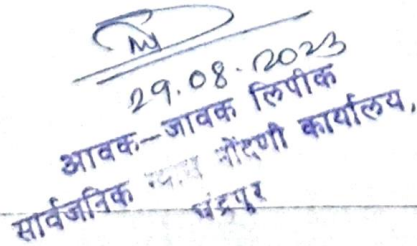 29.08.2023
आवक-जावक लिपीक
सार्वजनिक नोंदणी कार्यालय,
चंद्रपुर